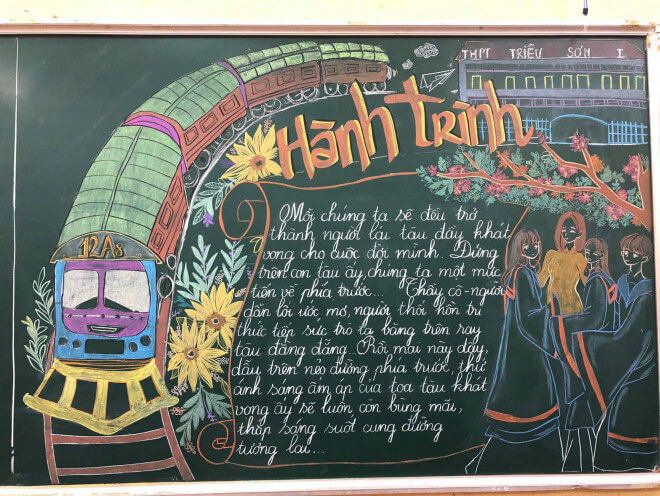 THPT TRIỆU SƠN I
Hành trình
12A8
Mỗi chúng ta sẽ đều trở
thành người lái tàu đầy khát
vọng cho cuộc đời mình. Đứng
trên con tàu ấy, chúng ta một mực
tiến về phía trước... Thầy cô - người
dẫn lối ước mơ, người thổi hồn tri
thức tiếp sức trò ta băng trên ray
tàu đằng đẵng... Rồi mai này đây,
dẫu trên nẻo đường phía trước, thứ
ánh sáng ấm áp của toa tàu khát
vọng ấy sẽ luôn còn bừng mãi,
thắp sáng suốt cung đường
tương lai...